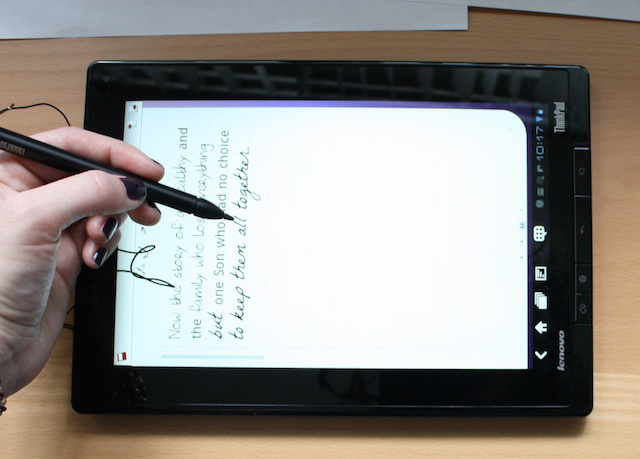 Now the story of a wealthy and
the family who lost everything
but one Son who had no choice
to keep them all together.
10:17
ThinkPad
lenovo